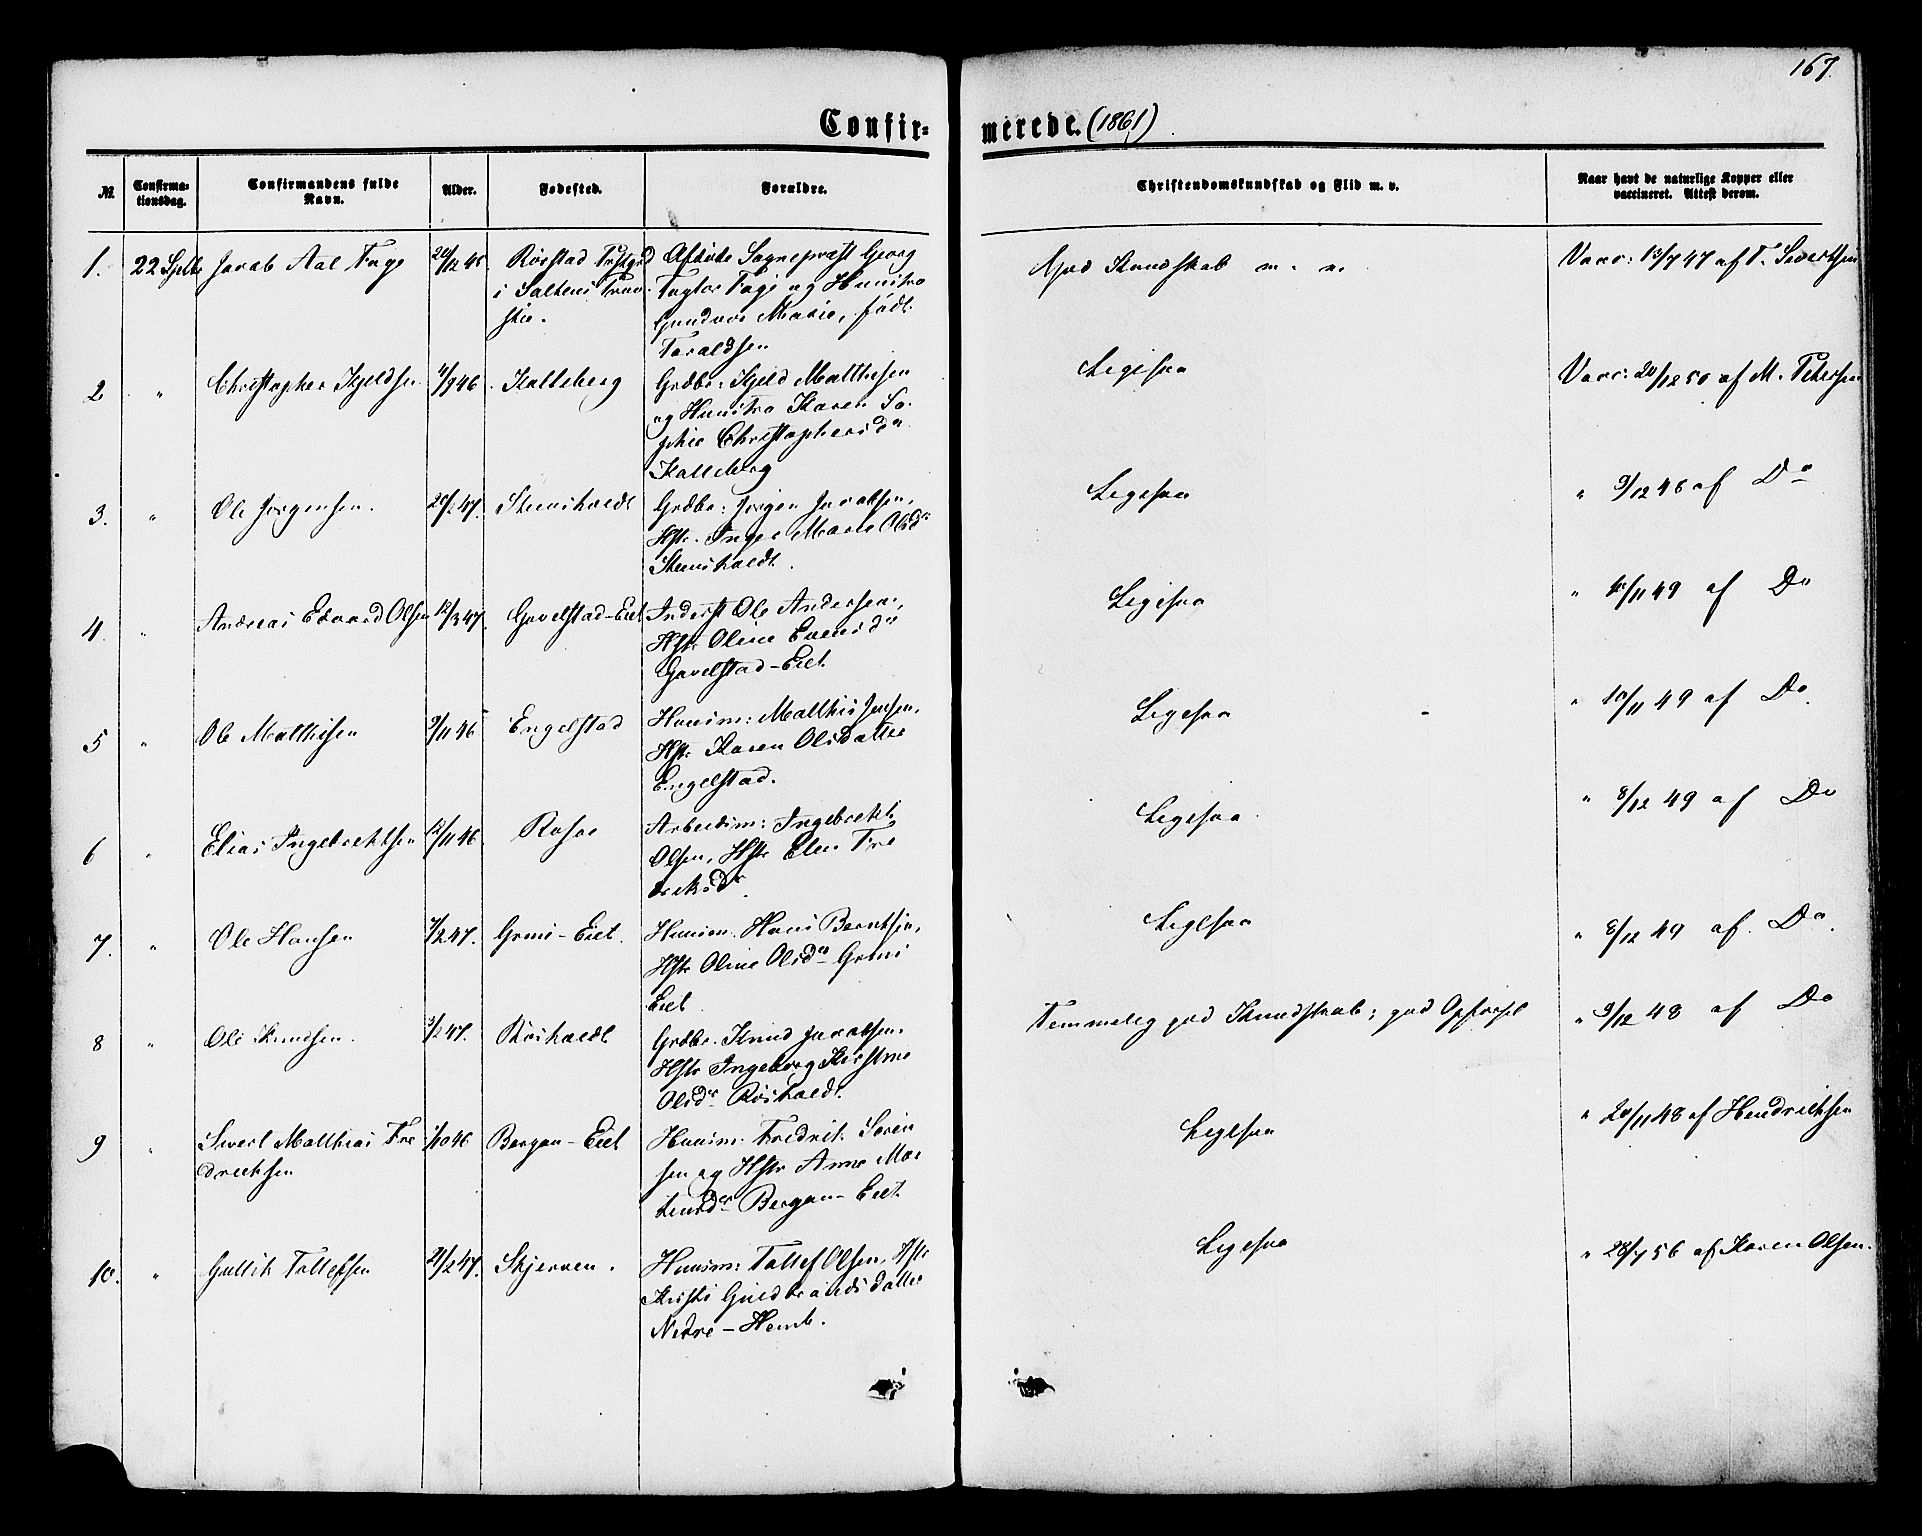 167.
Confirmerede. (1861)
№ Confirmationsdag. Confirmandens fulde Navn. Alder. Fødested. Forældre. Christendomskundskab og Flid m. v. Naar havt de naturlige Kopper eller vaccineret. Attest derom.
1. 22 Septbr Jacob Aal Fage
Rörstad Præstgjd
i Saltens Provstie.
Afdöde Sognepræst Georg
og Hustro
Gundvor Marie, født
Taraldsen
God Kundskab m. v.
Vacc: 13/7 47 af T. Sivertsen
2 " Christopher Kjeldsen 4/9 46. Kalleberg
Grdbr: Kjeld Matthisen
og Hustro Karen So-
phie Christophersdr
Kalleberg
Ligesaa
Vacc: 20/12 50 af M. Petersen
3. " Ole Jörgensen. 20/2 47. Steensholdt
Grdbr: Jörgen Jacobsen,
Hstr. Inger Marie Olsdr
Steensholdt.
Ligesaa
" 9/12 48 af Do
4. " Andreas Edvard Olsen 12/3 47. Gavelstad-Eiet
Inderst Ole Andersen,
Hstr Oline Evensdr
Gavelstad-Eiet.
Ligesaa
" 10/11 49 af Do
5 " Ole Matthisen 9/11 46 Engelstad
Huusm: Matthis Jensen,
Hstr Karen Olsdatter
Engelstad.
Ligesaa
" 10/11 49 af Do.
6 " Elias Ingebrethsen 12/11 46.
Arbeidsm: Ingebreth
Olsen, Hstr Elen Fre-
driksdr.
Ligesaa.
" 8/12 49 af Do
7. " Ole Hansen 4/2 47. Grini-Eiet.
Huusm. Hans Berntsen,
Hstr Oline Olsdr Grini
Eiet.
Ligesaa
" 8/12 49 af Do.
8 " Ole Knudsen. 3/2 47. Röisholdt
Grdbr. Knud Jacobsen.
Hstr Ingeborg Kirstine
Olsdr Röisholdt.
Temmelig god Kundskab; god Opförsel
" 9/12 48 af Do
9 " Sivert Matthias Fre-
dricksen
1/10 46 Bergan-Eiet
Huusm: Fredrik Sören-
sen og Hstr Anne Mor-
tensdr Bergan-Eiet.
Ligesaa
" 20/11 48 af Hendricksen
10. " Gullik Tollefsen 21/2 47. Skjerven.
Huusm: Tollef Olsen, Hstr
Kirsti Guldbrandsdatter
Nedre-Hemb.
Ligesaa
" 28/7 56 af Karen Olsen.